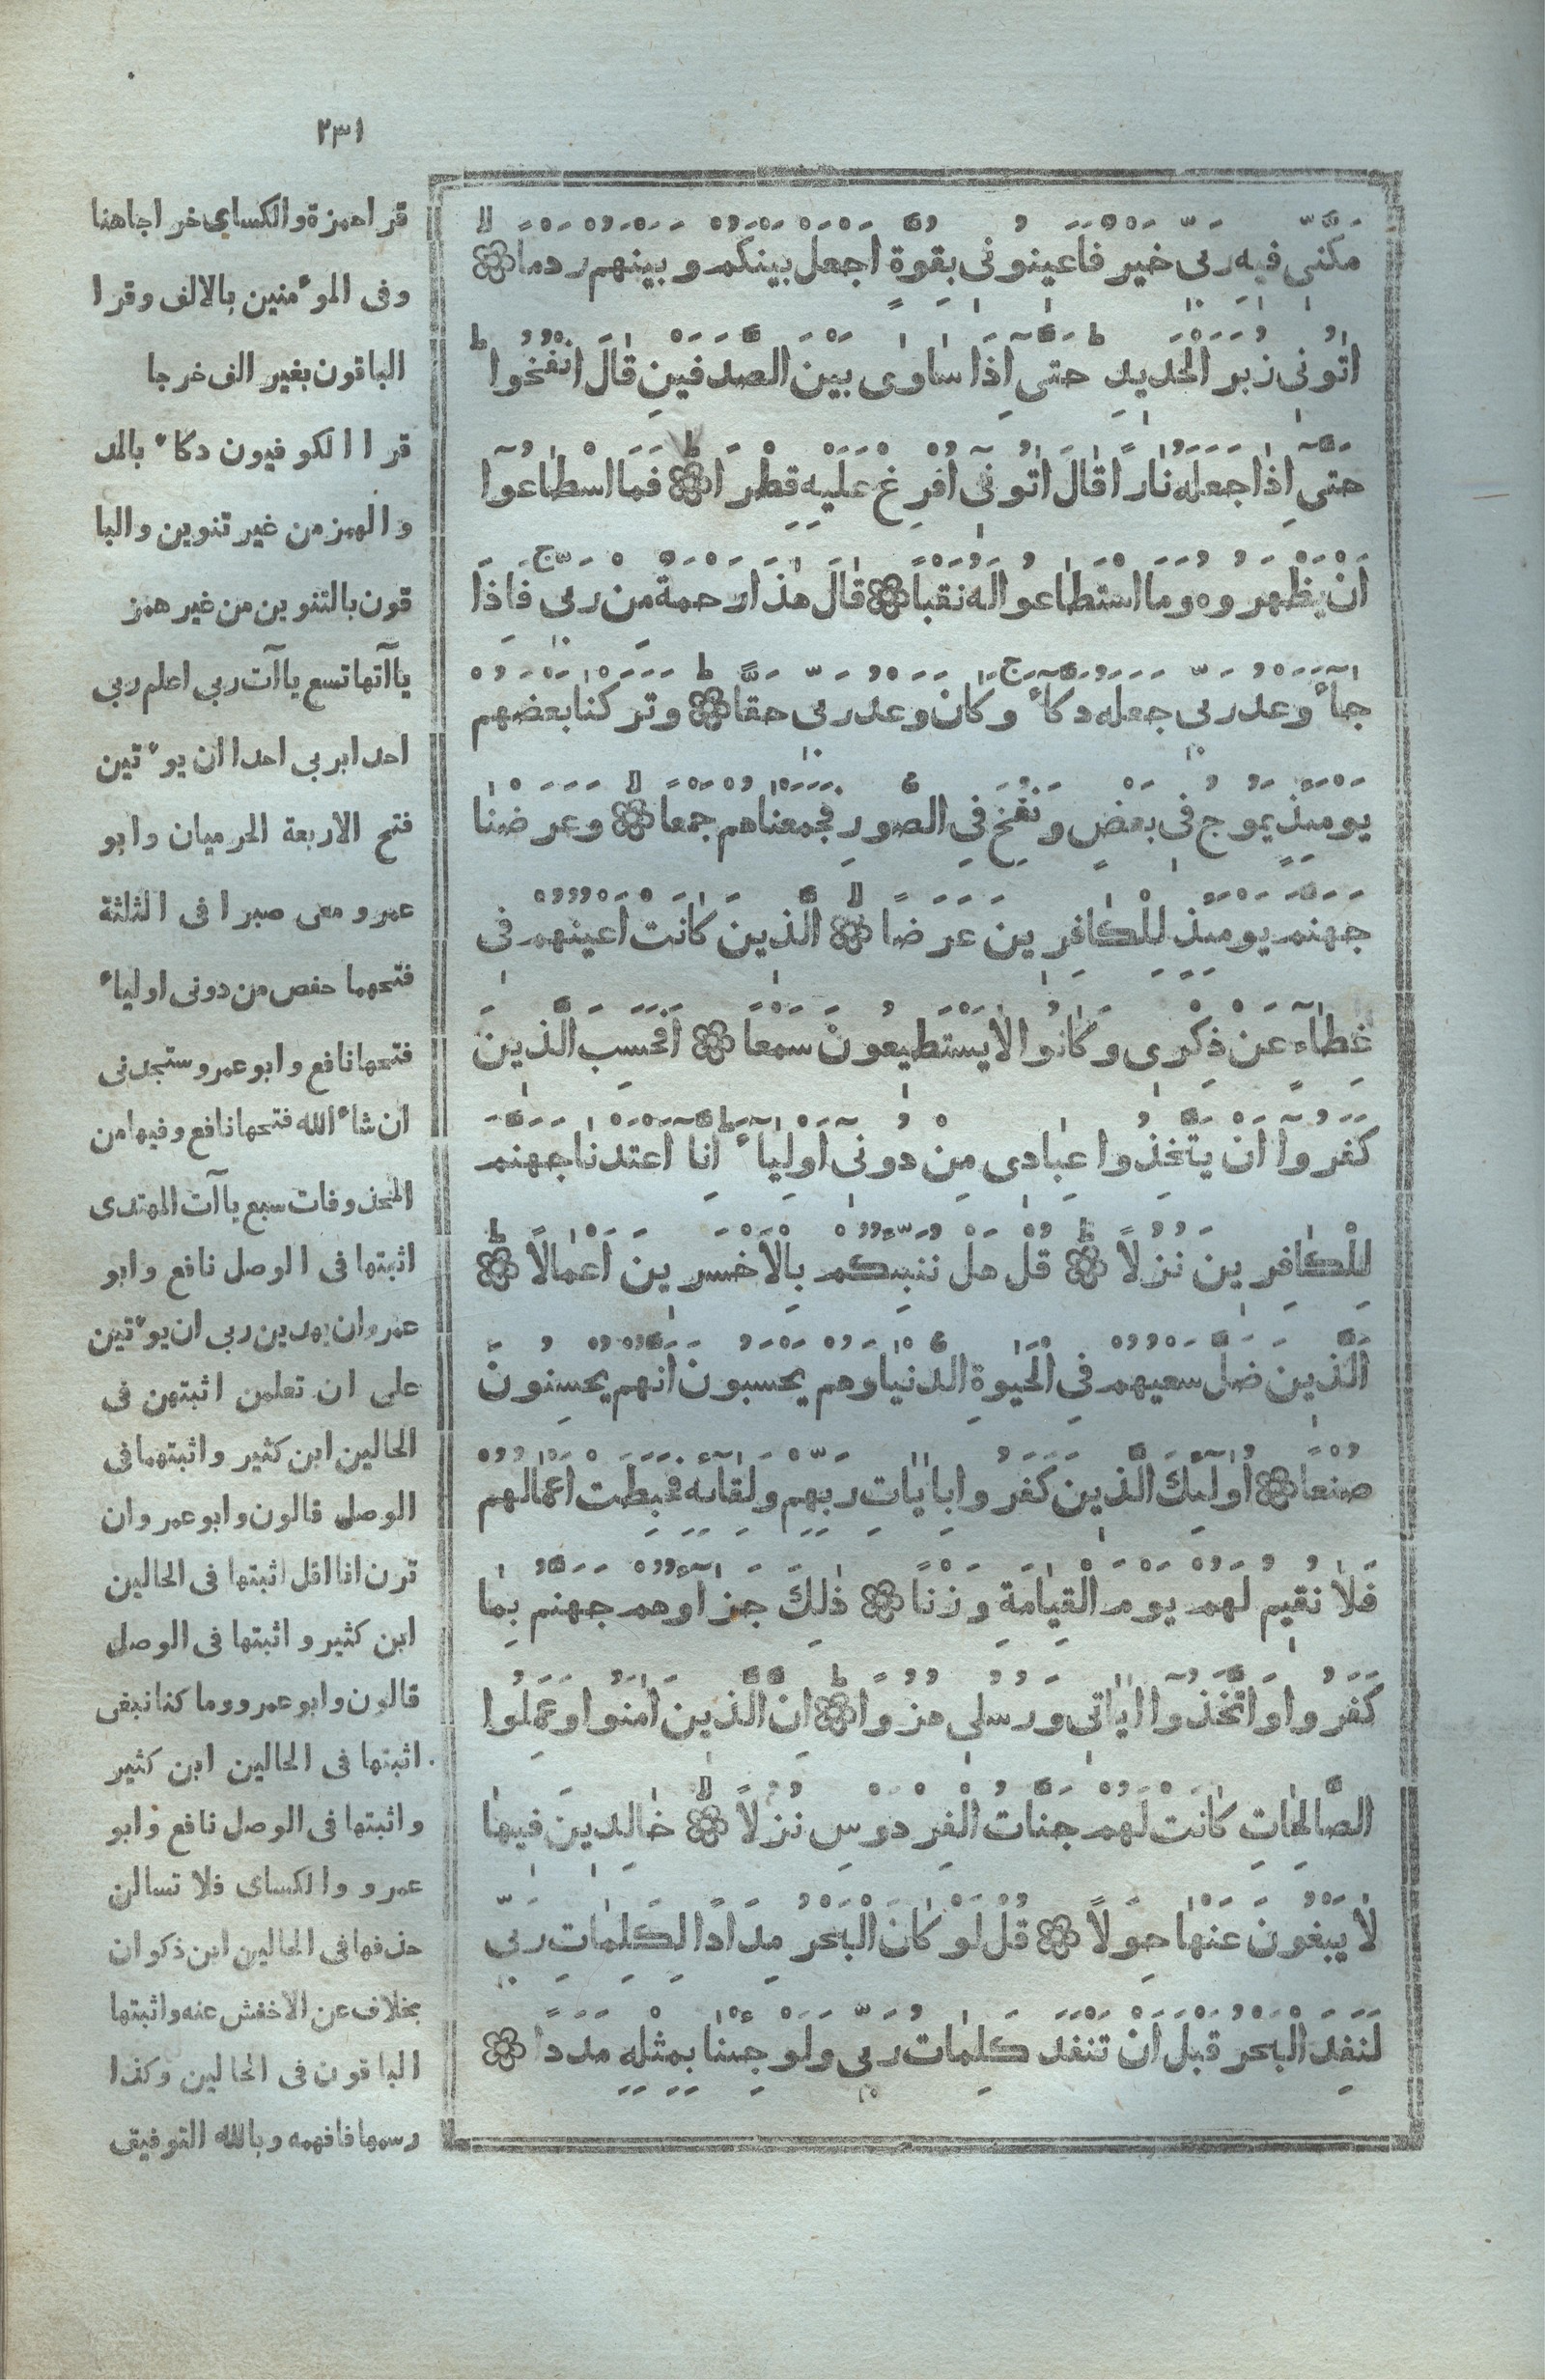 ٢٣١
مَكَّنّى فيهِ رَبّى خَيْرٌ فَاَعينُونى بِقُوَّةٍ اَجْعَلْ بَيْنَكُمْ وَبَيْنَهُمْ رَدْمًا
اٰتُونى زُبَرَ الْحَديدِ حَتّٰى اِذَا سٰاوٰى بَيْنَ الصَّدَفَيْنِ قٰالَ انْفُخُوا
حَتّٰى اِذٰا جَعَلَهُ نٰارًا قٰالَ اٰتُونى اُفْرِغْ عَلَيْهِ قِطْرًا فَمَا اسْطٰاعُوآ
اَنْ يَظْهَرُوهُ وَمَا اسْتَطٰاعُوا لَهُ نَقْبًا قٰالَ هٰذَا رَحْمَةٌ مِنْ رَبّى فَاِذَا
جٰاءَ وَعْدُ رَبّى جَعَلَهُ دَكّٰاءَ وَكٰانَ وَعْدُ رَبّى حَقًّا وَتَرَكْنٰا بَعْضَهُمْ
يَوْمَئِذٍ يَمُوجُ فى بَعْضٍ وَنُفِخَ فِى الصُّورِ فَجَمَعْنٰاهُمْ جَمْعًا وَعَرَضْنٰا
جَهَنَّمَ يَوْمَئِذٍ لِلْكٰافِرينَ عَرْضًا اَلَّذينَ كٰانَتْ اَعْيُنُهُمْ فى
غِطٰآءٍ عَنْ ذِكْرى وَكٰانُوا لٰا يَسْتَطيعُونَ سَمْعًا اَفَحَسِبَ الَّذينَ
كَفَرُوآ اَنْ يَتَّخِذُوا عِبٰادى مِنْ دُونى اَوْلِيٰاءَ اِنّٰا اَعْتَدْنٰا جَهَنَّمَ
لِلْكٰافِرينَ نُزُلًا قُلْ هَلْ نُنَبِّئُكُمْ بِالْاَخْسَرينَ اَعْمٰالًا
اَلَّذينَ ضَلَّ سَعْيُهُمْ فِى الْحَيٰوةِ الدُّنْيٰا وَهُمْ يَحْسَبُونَ اَنَّهُمْ يُحْسِنُونَ
صُنْعًا اُولٰئِكَ الَّذينَ كَفَرُوا بِاٰيٰاتِ رَبِّهِمْ وَلِقٰائِهِ فَحَبِطَتْ اَعْمٰالُهُمْ
فَلٰا نُقيمُ لَهُمْ يَوْمَ الْقِيٰامَةِ وَزْنًا ذٰلِكَ جَزٰاؤُهُمْ جَهَنَّمُ بِمٰا
كَفَرُوا وَاتَّخَذُوآ اٰيٰاتى وَرُسُلى هُزُوًا اِنَّ الَّذينَ اٰمَنُوا وَعَمِلُوا
الصّٰالِحٰاتِ كٰانَتْ لَهُمْ جَنّٰاتُ الْفِرْدَوْسِ نُزُلًا خٰالِدينَ فيهٰا
لٰا يَبْغُونَ عَنْهٰا حِوَلًا قُلْ لَوْ كٰانَ الْبَحْرُ مِدَادًا لِكَلِمٰاتِ رَبّى
لَنَفِدَ الْبَحْرُ قَبْلَ اَنْ تَنْفَدَ كَلِمٰاتُ رَبّى وَلَوْ جِئْنٰا بِمِثْلِهِ مَدَدًا
قرا حمزة والكساى خراجا هنا
وفى الموءمنين بالالف وقرا
الباقون بغير الف خرجا
قرا الكوفيون دكاء بالمد
والهمز من غير تنوين والبا
قون بالتنوين من غير همز
ياآتها تسع ياآت ربى اعلم ربى
احدا بربى احدا ان يوءتين
فتح الاربعة الحرميان وابو
عمرو معى صبرا فى الثلثة
فتحهما حفص من دونى اولياء
فتحها نافع وابو عمرو ستجدنى
ان شاء الله فتحها نافع وفيها من
المحذوفات سبع ياآت المهتدى
اثبتها فى الوصل نافع وابو
عمرو ان يهدين ربى ان يوءتين
على ان تعلمن اثبتهن فى
الحالين ابن كثير واثبتهما فى
الوصل قالون وابو عمرو ان
ترن انا اقل اثبتها فى الحالين
ابن كثير واثبتها فى الوصل
قالون وابو عمرو وما كنا نبغى
اثبتها فى الحالين ابن كثير
واثبتها فى الوصل نافع وابو
عمرو والكساى فلا تسالن
حذفها فى الحالين ابن ذكوان
بخلاف عن الاخفش عنه واثبتها
الباقون فى الحالين وكذا
رسمها فافهمه وبالله التوفيق